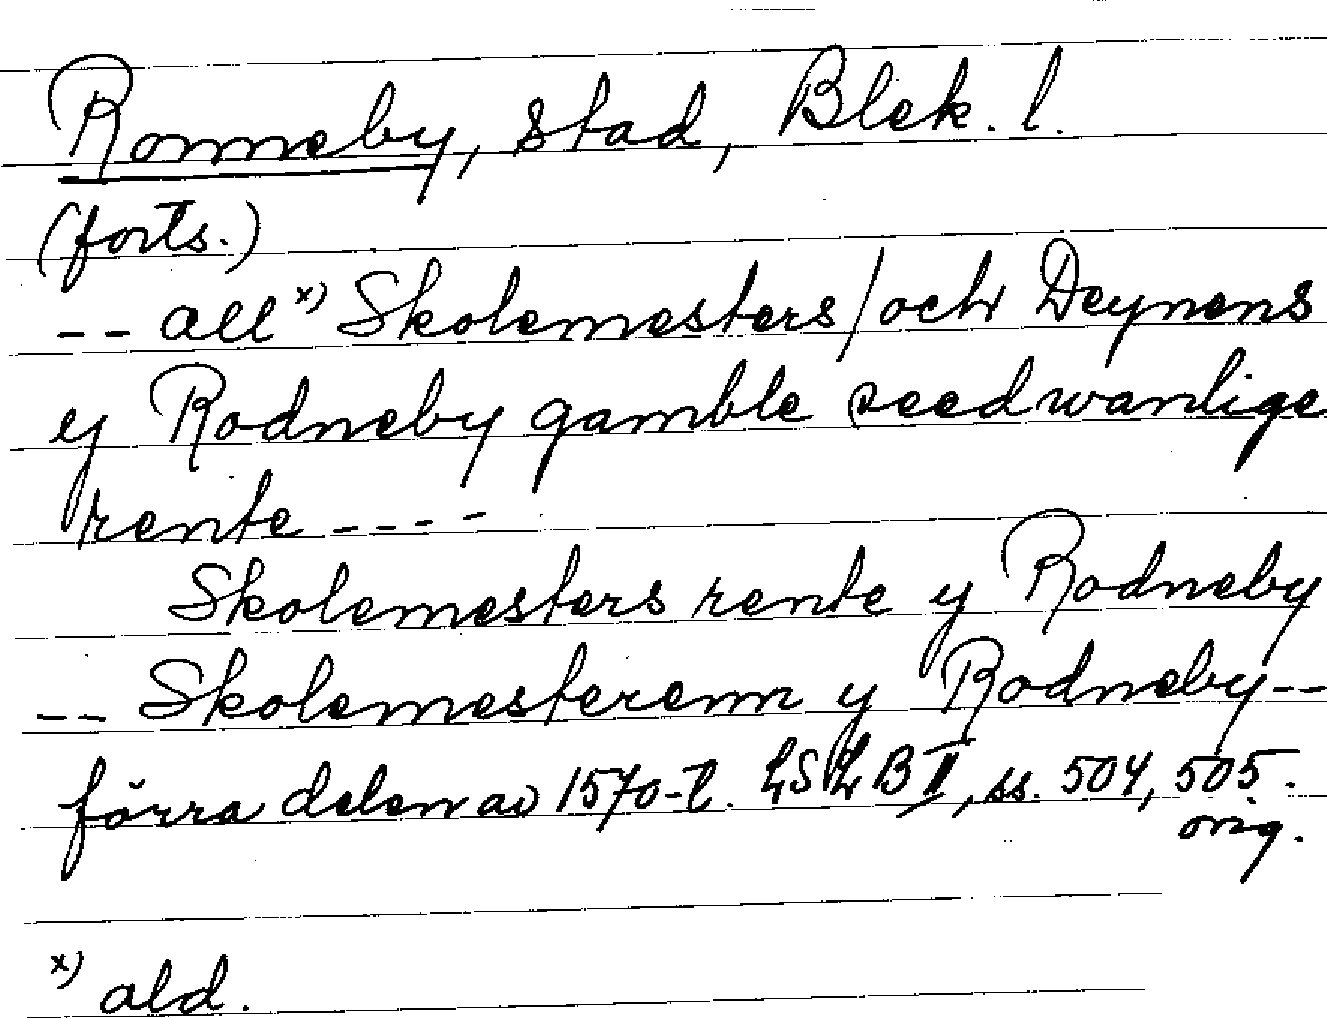 Ronneby, stad, Blek. l.
(forts.)
-- all x) Skolemesters / och Deynens
y Rodneby gamble seedwanlige
rente ----
Skolemesters rente y Rodneby
-- Skolemesterenn y Rodneby--
förra delen av 1570-t. LSLB II, ss. 504, 505.
orig.
x) ald.